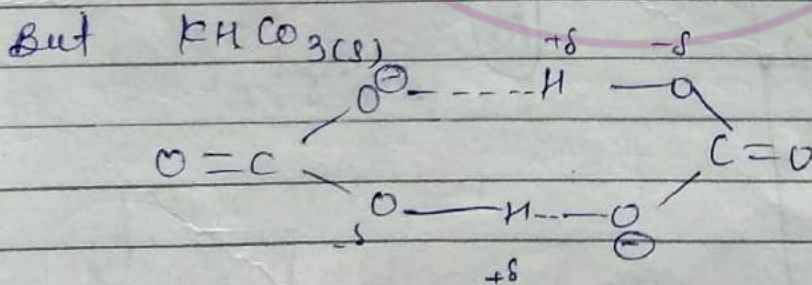 But KHCO3(s)
+δ -δ
O⊖ ----- H — O
O = C C = O
O — H --- O
-δ ⊖
+δ